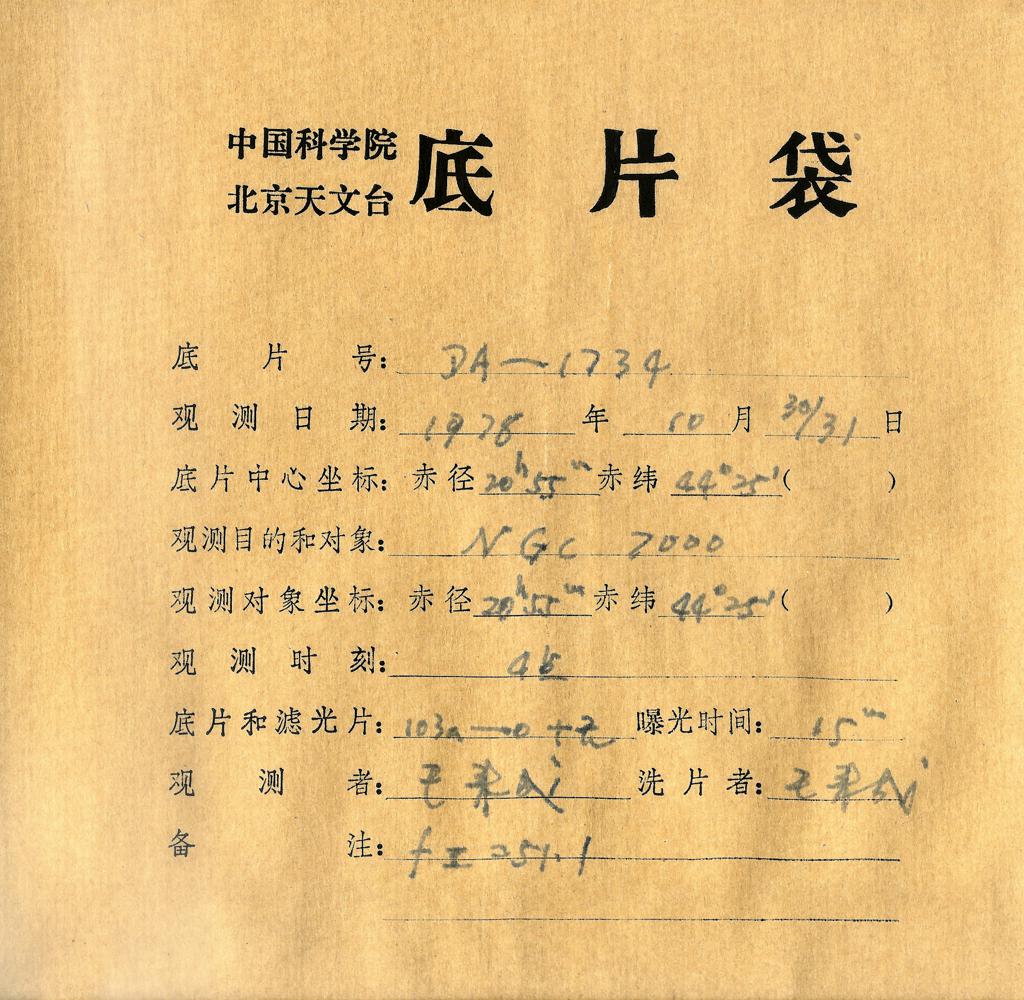 中国科学院
北京天文台 底片袋
底片号: DA—1734
观测日期: 1978 年 10 月 30/31 日
底片中心坐标: 赤径 20h55m 赤纬 44°25′( )
观测目的和对象: NGC 7000
观测对象坐标: 赤径 20h55m 赤纬 44°25′( )
观测时刻:
底片和滤光片: 103a—0 +无 曝光时间: 15m
观测者: 王 洗片者: 王
备注: fI=251.1